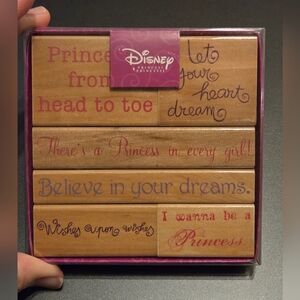 Disney
PRINCESS
Prince
from
head to toe
let
your
heart
dream
There's a Princess in every girl!
Believe in your dreams.
Wishes upon wishes
I wanna be a
Princess